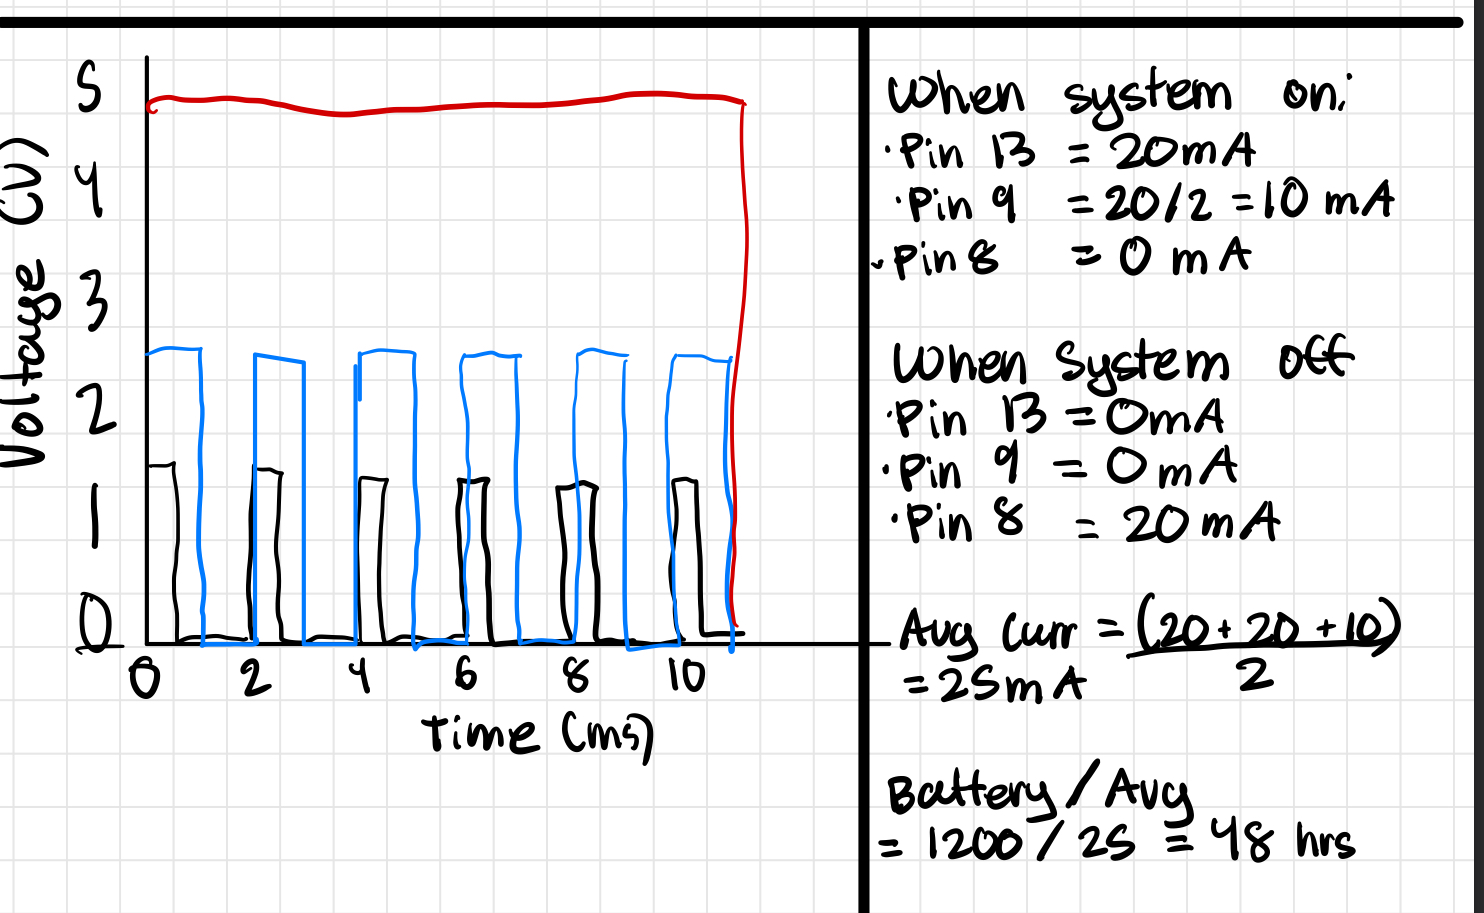 5
4
3
2
1
0
Voltage (V)
0 2 4 6 8 10
time (ms)
When system on:
· Pin 13 = 20mA
· Pin 9 = 20/2 = 10 mA
· Pin 8 = 0 mA
When System off
· Pin 13 = 0mA
· Pin 9 = 0 mA
· Pin 8 = 20 mA
Avg Curr = (20 + 20 + 10)
2
= 25mA
Battery / Avg
= 1200 / 25 = 48 hrs